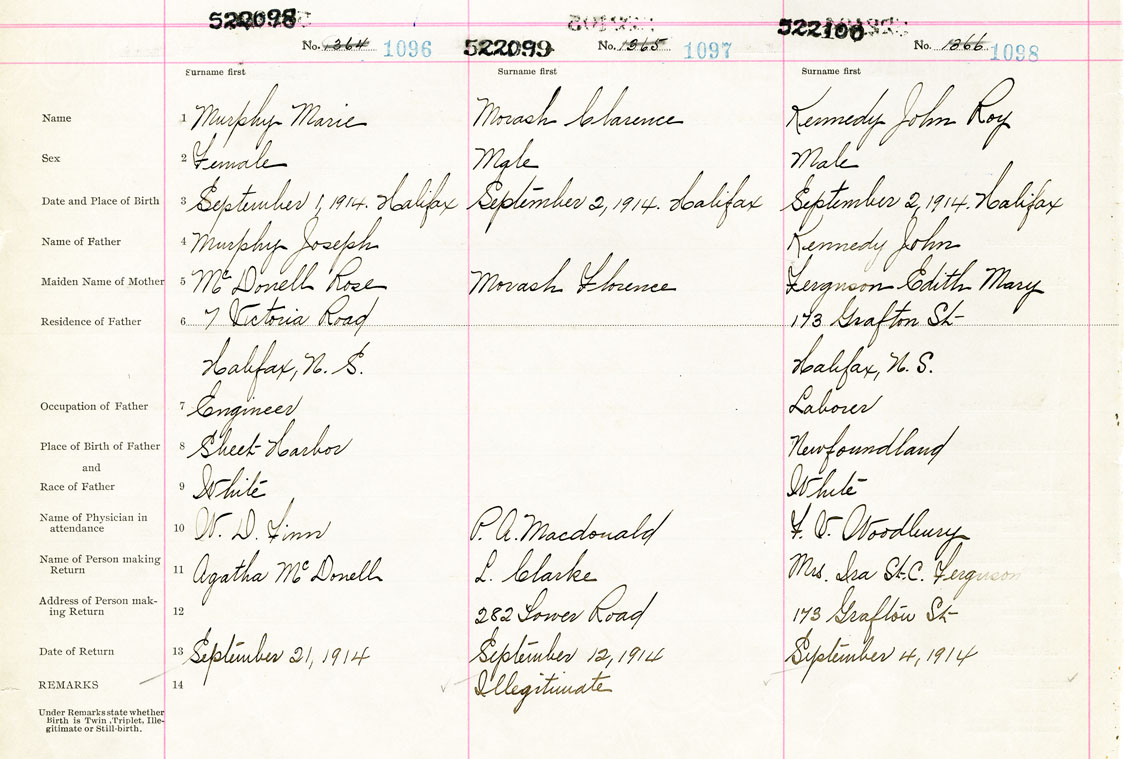 522098
No. 1364 1096
522099
No. 1365 1097
522100
No. 1366 1098
Surname first Surname first Surname first
Name 1 Murphy Marie Morash Clarence Kennedy John Roy
Sex 2 Female Male Male
Date and Place of Birth 3 September 1, 1914. Halifax September 2, 1914. Halifax September 2, 1914. Halifax
Name of Father 4 Murphy Joseph Kennedy John
Maiden Name of Mother 5 McDonell Rose Morash Florence Ferguson Edith Mary
Residence of Father 6 7 Victoria Road 173 Grafton St
Halifax, N. S. Halifax, N. S.
Occupation of Father 7 Engineer Laborer
Place of Birth of Father 8 Sheet Harbor Newfoundland
and
Race of Father 9 White White
Name of Physician in
attendance 10 W. D. Finn P. A. Macdonald F. V. Woodbury
Name of Person making
Return 11 Agatha McDonell L. Clarke Mrs. Ira St. C. Ferguson
Address of Person mak-
ing Return 12 282 Lower Road 173 Grafton St
Date of Return 13 September 21, 1914 September 12, 1914 September 4, 1914
REMARKS 14 Illegitimate
Under Remarks state whether
Birth is Twin, Triplet, Ille-
gitimate or Still-birth.